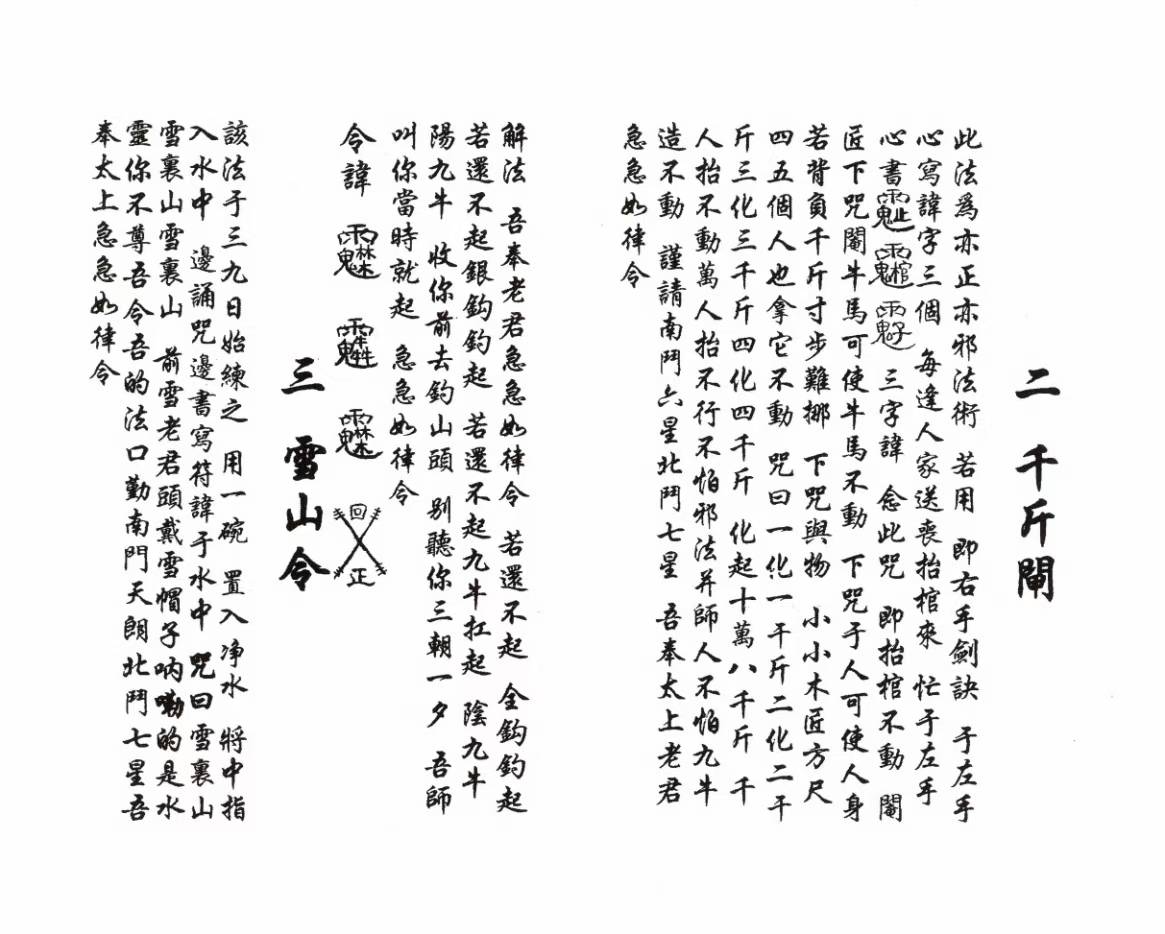 二 千斤閘
此法爲亦正亦邪法術 若用 即右手劍訣 于左手
心寫諱字三個 每逢人家送喪抬棺來 忙于左手
心書 三字諱 念此咒 即抬棺不動 閹
匠下咒閹牛馬可使牛馬不動 下咒于人可使人身
若背負千斤寸步難挪 下咒與物 小小木匠方尺
四五個人也拿它不動 咒曰一化一千斤二化二千
斤三化三千斤四化四千斤 化起十萬八千斤 千
人抬不動萬人抬不行不怕邪法并師人不怕九牛
造不動 謹請南鬥六星北鬥七星 吾奉太上老君
急急如律令
解法 吾奉老君急急如律令 若還不起 全鈎鈎起
若還不起銀鈎鈎起 若還不起九牛扛起 陰九牛
陽九牛 收你前去釣山頭 别聽你三朝一夕 吾師
叫你當時就起 急急如律令
令諱 回 正
三 雪山令
該法于三九日始練之 用一碗 置入净水 將中指
入水中 邊誦咒邊書寫符諱于水中 咒曰雪裏山
雪裏山雪裏山 前雪老君頭戴雪帽子呐嘞的是水
靈你不尊吾令吾的法口勤南門天朗北鬥七星吾
奉太上急急如律令